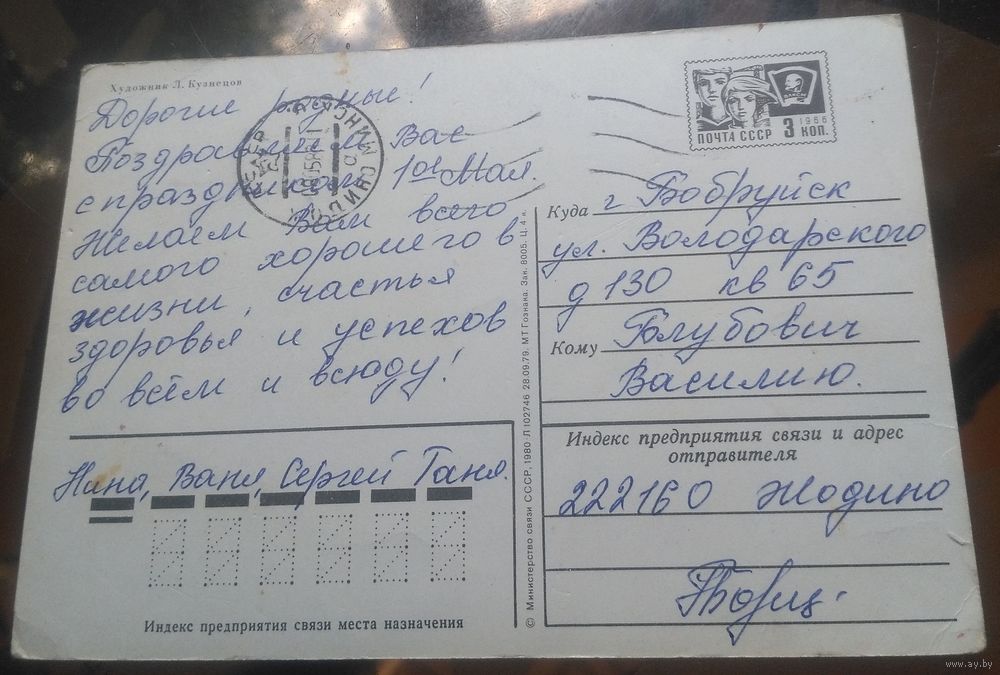 Художник Л. Кузнецов
Дорогие родные!
Поздравляем Вас
с праздником 1ое Мая.
Желаем Вам всего
самого хорошего в
жизни, счастья
здоровья и успехов
во всём и всюду!
Нина, Ваня, Сергей Таня.
Индекс предприятия связи места назначения
© Министерство связи СССР, 1980 Л 102746 28.09.79. МТ Гознака. Зак. 8005. Ц. 4 к.
ПОЧТА СССР 3 КОП.
1966
ВЛКСМ
Куда г. Бобруйск
ул. Володарского
д 130 кв 65
Кому Голубович
Василию.
Индекс предприятия связи и адрес
отправителя
222160 Жодино
www.ay.by